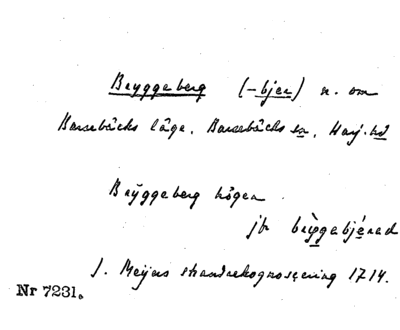 Bryggeberg (-bjer) n. om
Barsebäcks läge, Barsebäcks sn, Harj. hd
Brÿggeberg högen
jfr bryggabjerad
J. Meijers strandrekognoscering 1714.
Nr 7231.